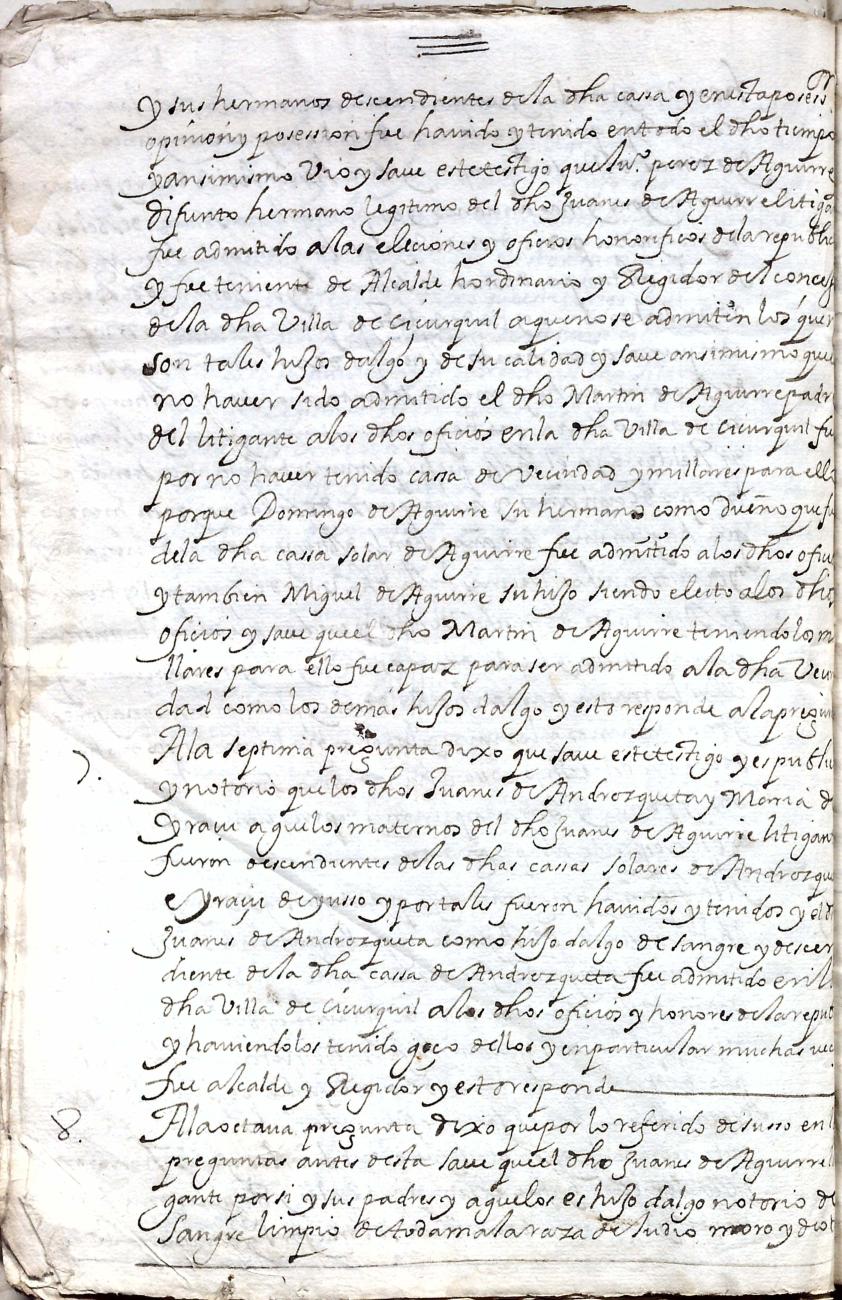 y sus hermanos descendientes de la dha cassa y en esta posess
opinion y posession fue havido y tenido en todo el dho tiempo
y ansimismo vio y save este testigo que Ju.º perez de Aguirre
difunto hermano legitimo del dho Juanes de Aguirre litiga
fue admitido a las eleciones y oficios honorificos de la republi
y fue teniente de Alcalde hordinario y Regidor del concej
de la dha Villa de Cicurquil a que no se admiten los que n
son tales hijos dalgo y de su calidad y save ansimismo que
no haver sido admitido el dho Martin de Aguirre padr
del litigante a los dhos oficios en la dha Villa de Cicurquil fu
por no haver tenido cassa de vecindad y millares para ella
porque Domingo de Aguirre su hermano como dueño que fu
de la dha cassa solar de Aguirre fue admitido a los dhos ofici
y tambien Miguel de Aguirre su hijo siendo electo a los dhos
oficios y save que el dho Martin de Aguirre teniendo los mi
llares para ello fue capaz para ser admitido a la dha Vecin
dad como los demas hijos dalgo y esto responde a la pregun
7. A la septima pregunta dixo que save este testigo y es publi
y notorio que los dhos Juanes de Androzqueta y Maria de
yraçu aguelos maternos del dho Juanes de Aguirre litigan
fueron descendientes de las dhas cassas solares de Androzque
e yraçu de yusso y por tales fueron havidos y tenidos y el d
Juanes de Androzqueta como hijo dalgo de sangre y descen
diente de la dha cassa de Androzqueta fue admitido en la
dha Villa de Cicurquil a los dhos oficios y honores de la repub
y haviendolos tenido goço dellos y en particular muchas vec
fue alcalde y Regidor y esto responde
8. A la octava pregunta dixo que por lo referido de susso en l
preguntas antes desta save que el dho Juanes de Aguirre l
gante por si y sus padres y aguelos es hijo dalgo notorio de
sangre limpio de toda mala raza de Judio moro y de ot